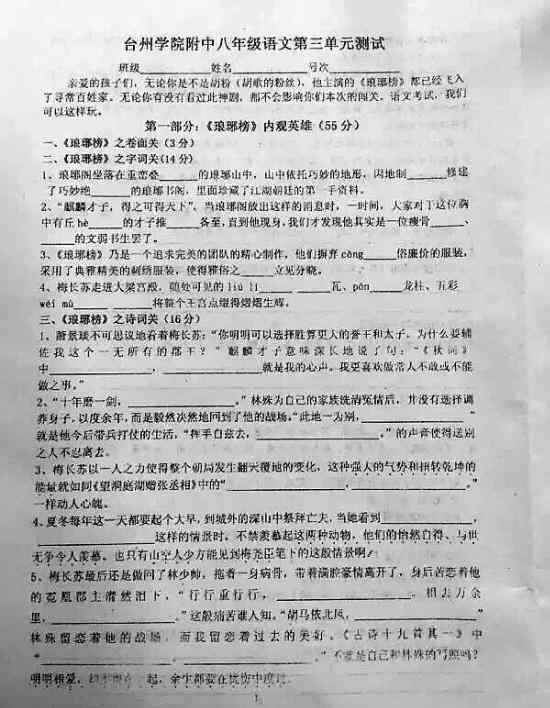 台州学院附中八年级语文第三单元测试
班级________姓名________号次________
亲爱的孩子们，无论你是不是胡粉（胡歌的粉丝），他主演的《琅琊榜》都已经飞入
了寻常百姓家。无论你有没有看过此神剧，都不会影响你们本次的闯关。语文考试，我们
可以这样玩。
第一部分：《琅琊榜》内观英雄（55 分）
一、《琅琊榜》之卷面关（3 分）
二、《琅琊榜》之字词关（14 分）
1、琅琊阁坐落在重峦叠______的琅琊山中，山中依托巧妙的地形，因地制______修建
了巧妙绝______的琅琊书阁，里面珍藏了江湖朝廷的第一手资料。
2、“麒麟才子，得之可得天下”。当琅琊阁放出这样的消息时，一时间，大家对于这位胸
中有丘 hè______的才子推______备至，直到他现身，我们才发现他其实是一位瘦骨______、
______的文弱书生罢了。
3、《琅琊榜》乃是一个追求完美的团队的精心制作，他们摒弃 cōng______俗廉价的服装，
采用了典雅精美的刺绣服装，使得雅俗之______立见分晓。
4、梅长苏走进大梁宫殿，随处可见的 liú lí______ ______瓦、pán______龙柱、五彩
wéi mù______ ______将整个王宫点缀得熠熠生辉。
三、《琅琊榜》之诗词关（16 分）
1、萧景琰不可思议地看着梅长苏：“你明明可以选择胜算更大的誉王和太子，为什么要辅
佐我这个一无所有的郡王？”麒麟才子意味深长地说了句：“《秋词》
中______________，______________就是我的心声。我更喜欢做常人不敢或不能
做之事。”
2、“十年磨一剑，______________。”林殊为自己的家族洗清冤情后，并没有选择调
养身子，以度余年，而是毅然决然地回到了他的战场。“此地一为别，______________”
就是他今后带兵打仗的生活，“挥手自兹去，______________。”的声音使得送别
之人不忍离去。
3、梅长苏以一人之力使得整个朝局发生翻天覆地的变化，这种强人的气势和扭转乾坤的
能量就如同《望洞庭湖赠张丞相》中的“______________，______________。”
一样动人心魄。
4、夏冬每年这一天都要起个大早，到城外的深山中祭拜亡夫，当她看到__________，
______________这样的情景时，不禁羡慕起这两种动物，他们的怡然自得、与世
无争令人羡慕。也只有山空人少方能见到梅尧臣笔下的这般情景啊！
5、梅长苏最后还是做回了林少帅，拖着一身病骨，带着满腔豪情离开了，身后苦恋着他
的霓凰郡主潸然泪下，“行行重行行，______________。相去万余
里，______________。”这般痛苦谁人知。“胡马依北风，______________”
林殊留恋着他的战场，而我留恋着过去的美好。《古诗十九首其一》中
“______________，______________。”不就是自己和林殊的写照吗？
明明相爱，却不能在一起，余生都要在忧伤中度过。
1